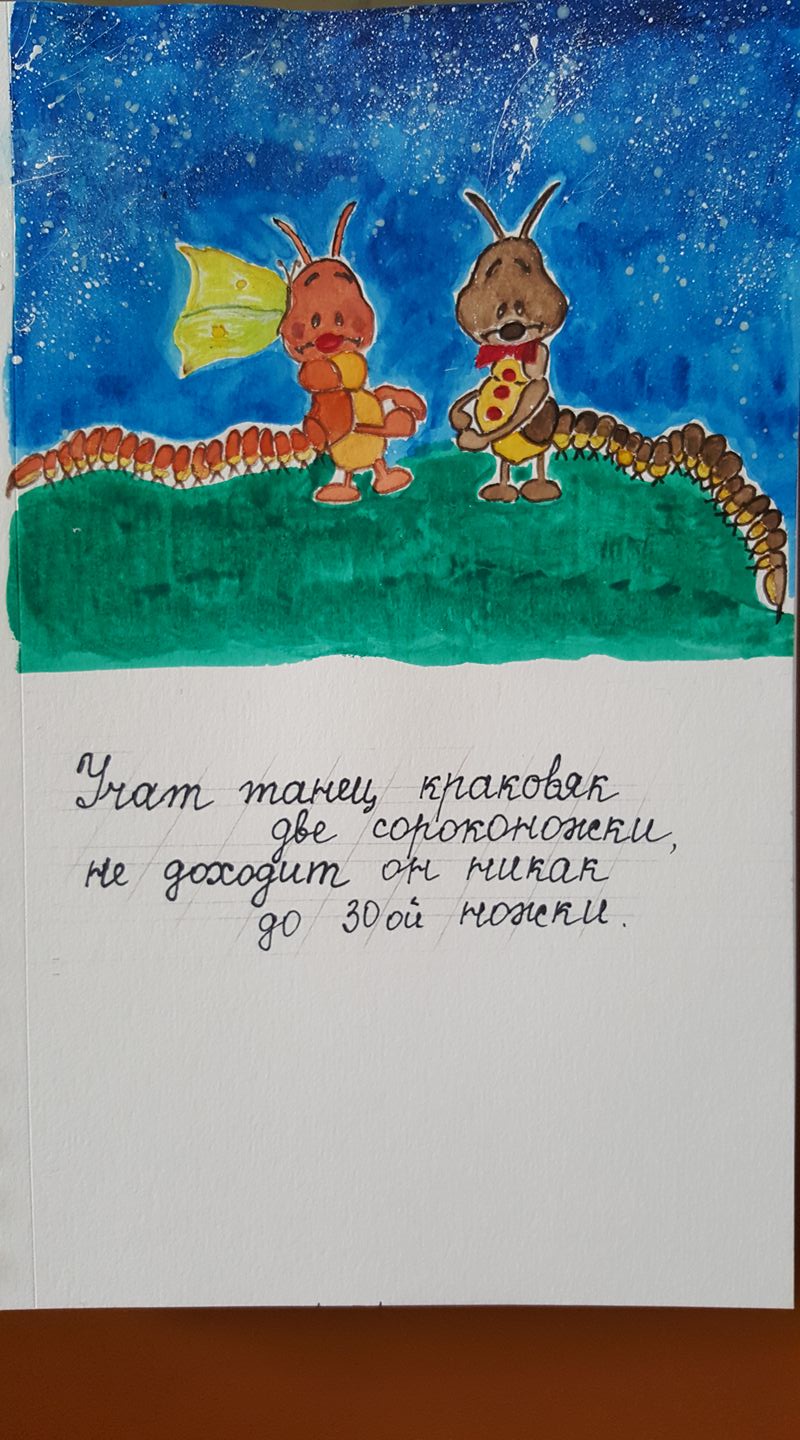 Учат танец краковяк
две сороконожки,
не доходит он никак
до 30ой ножки.